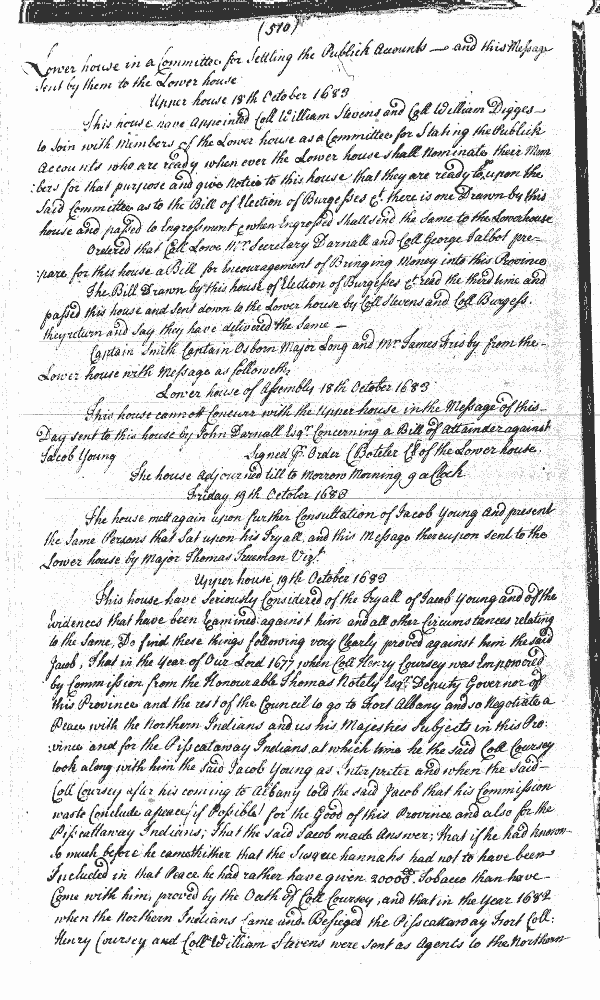 (510)
Lower house in a Committee for Settling the Publick Accounts — and this Message
Sent by them to the Lower house
Upper house 18th October 1683
This house have appointed Coll William Stevens and Coll William Digges
to Join with Members of the Lower house as a Committee for Stating the Publick
Accounts who are ready when ever the Lower house shall Nominate their Mem
:bers for that purpose and give Notice to this house that they are ready to, upon the
Said Committee as to the Bill of Election of Burgesses &c. there is one Drawn by this
house and passed to Engrossment & when Engrossed shall send the same to the Lowerhouse
Ordered that Coll Lowe Mr. Secretary Darnall and Coll George Talbot pre-
:pare for this house a Bill for Encouragement of Bringing Money into this Province
The Bill Drawn by this house of Election of Burgesses &c. read the third time and
passed this house and sent down to the Lower house by Coll Stevens and Coll Burgess.
they return and say they have delivered the Same —
Captain Smith Captain Osborn Major Long and Mr. James Frisby from the-
Lower house with Message as followeth,
Lower house of Assembly 18th October 1683
This house cannot Concurr with the Upper house in the Message of this
Day sent to this house by John Darnall Esqr. Concerning a Bill of Attainder against
Jacob Young Signed Pr. Order C Boteler Cl of the Lower house.
The house Adjourned till to Morrow Morning 9 a Clock
Friday 19th October 1683
The house mett again upon further Consultation of Jacob Young And present
the Same Persons that Sat upon his Tryall, and this Message thereupon sent to the
Lower house by Major Thomas Trueman Vizt.
Upper house 19th October 1683
This house have Seriously Considered of the Tryall of Jacob Young and of the
Evidences that have been Examined against him and all other Circumstances relating
to the same, Do find these things following very Clearly proved against him the said
Jacob, That in the Year of Our Lord 1677 when Coll Henry Coursey was Impowered
by Commission from the Honourable Thomas Notely Esqr. Deputy Governor of
this Province and the rest of the Council to go to Fort Albany and so Negotiate a
Peace with the Northern Indians and us his Majesties Subjects in this Pro:
:vince and for the Pisscattaway Indians, at which time he the said Coll Coursey
took along with him the said Jacob Young as Interpreter and when the said-
Coll Coursey after his coming to Albany told the said Jacob that his Commission
was to Conclude a peace (if Possible) for the Good of this Province and also for the
Pisscattaway Indians; That the said Jacob made Answer; that if he had known
so much before he came thither that the Susquehannahs had not to have been
Included in that Peace he had rather have given 20000 Tobacco than have-
Come with him, proved by the Oath of Coll Coursey, and that in the Year 1682
when the Northern Indians Came and Besieged the Pisscattaway Fort Coll:
Henry Coursey and Coll William Stevens were sent as Agents to the Northern